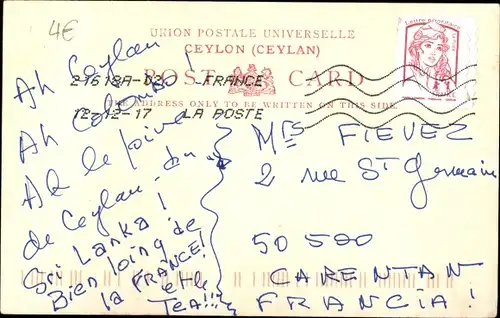 4€
UNION POSTALE UNIVERSELLE
CEYLON (CEYLAN)
POST CARD
THE ADDRESS ONLY TO BE WRITTEN ON THIS SIDE
21618A-02 FRANCE
12-12-17 LA POSTE
Ah Ceylan
Ah Colombo!
Ah le poivre
de Ceylan - du
Sri Lanka!
Bien loing de
la FRANCE!
et le
TEA!!!
Mrs FIEVEZ
2 rue St Germain
50500
CARENTAN
FRANCIA!